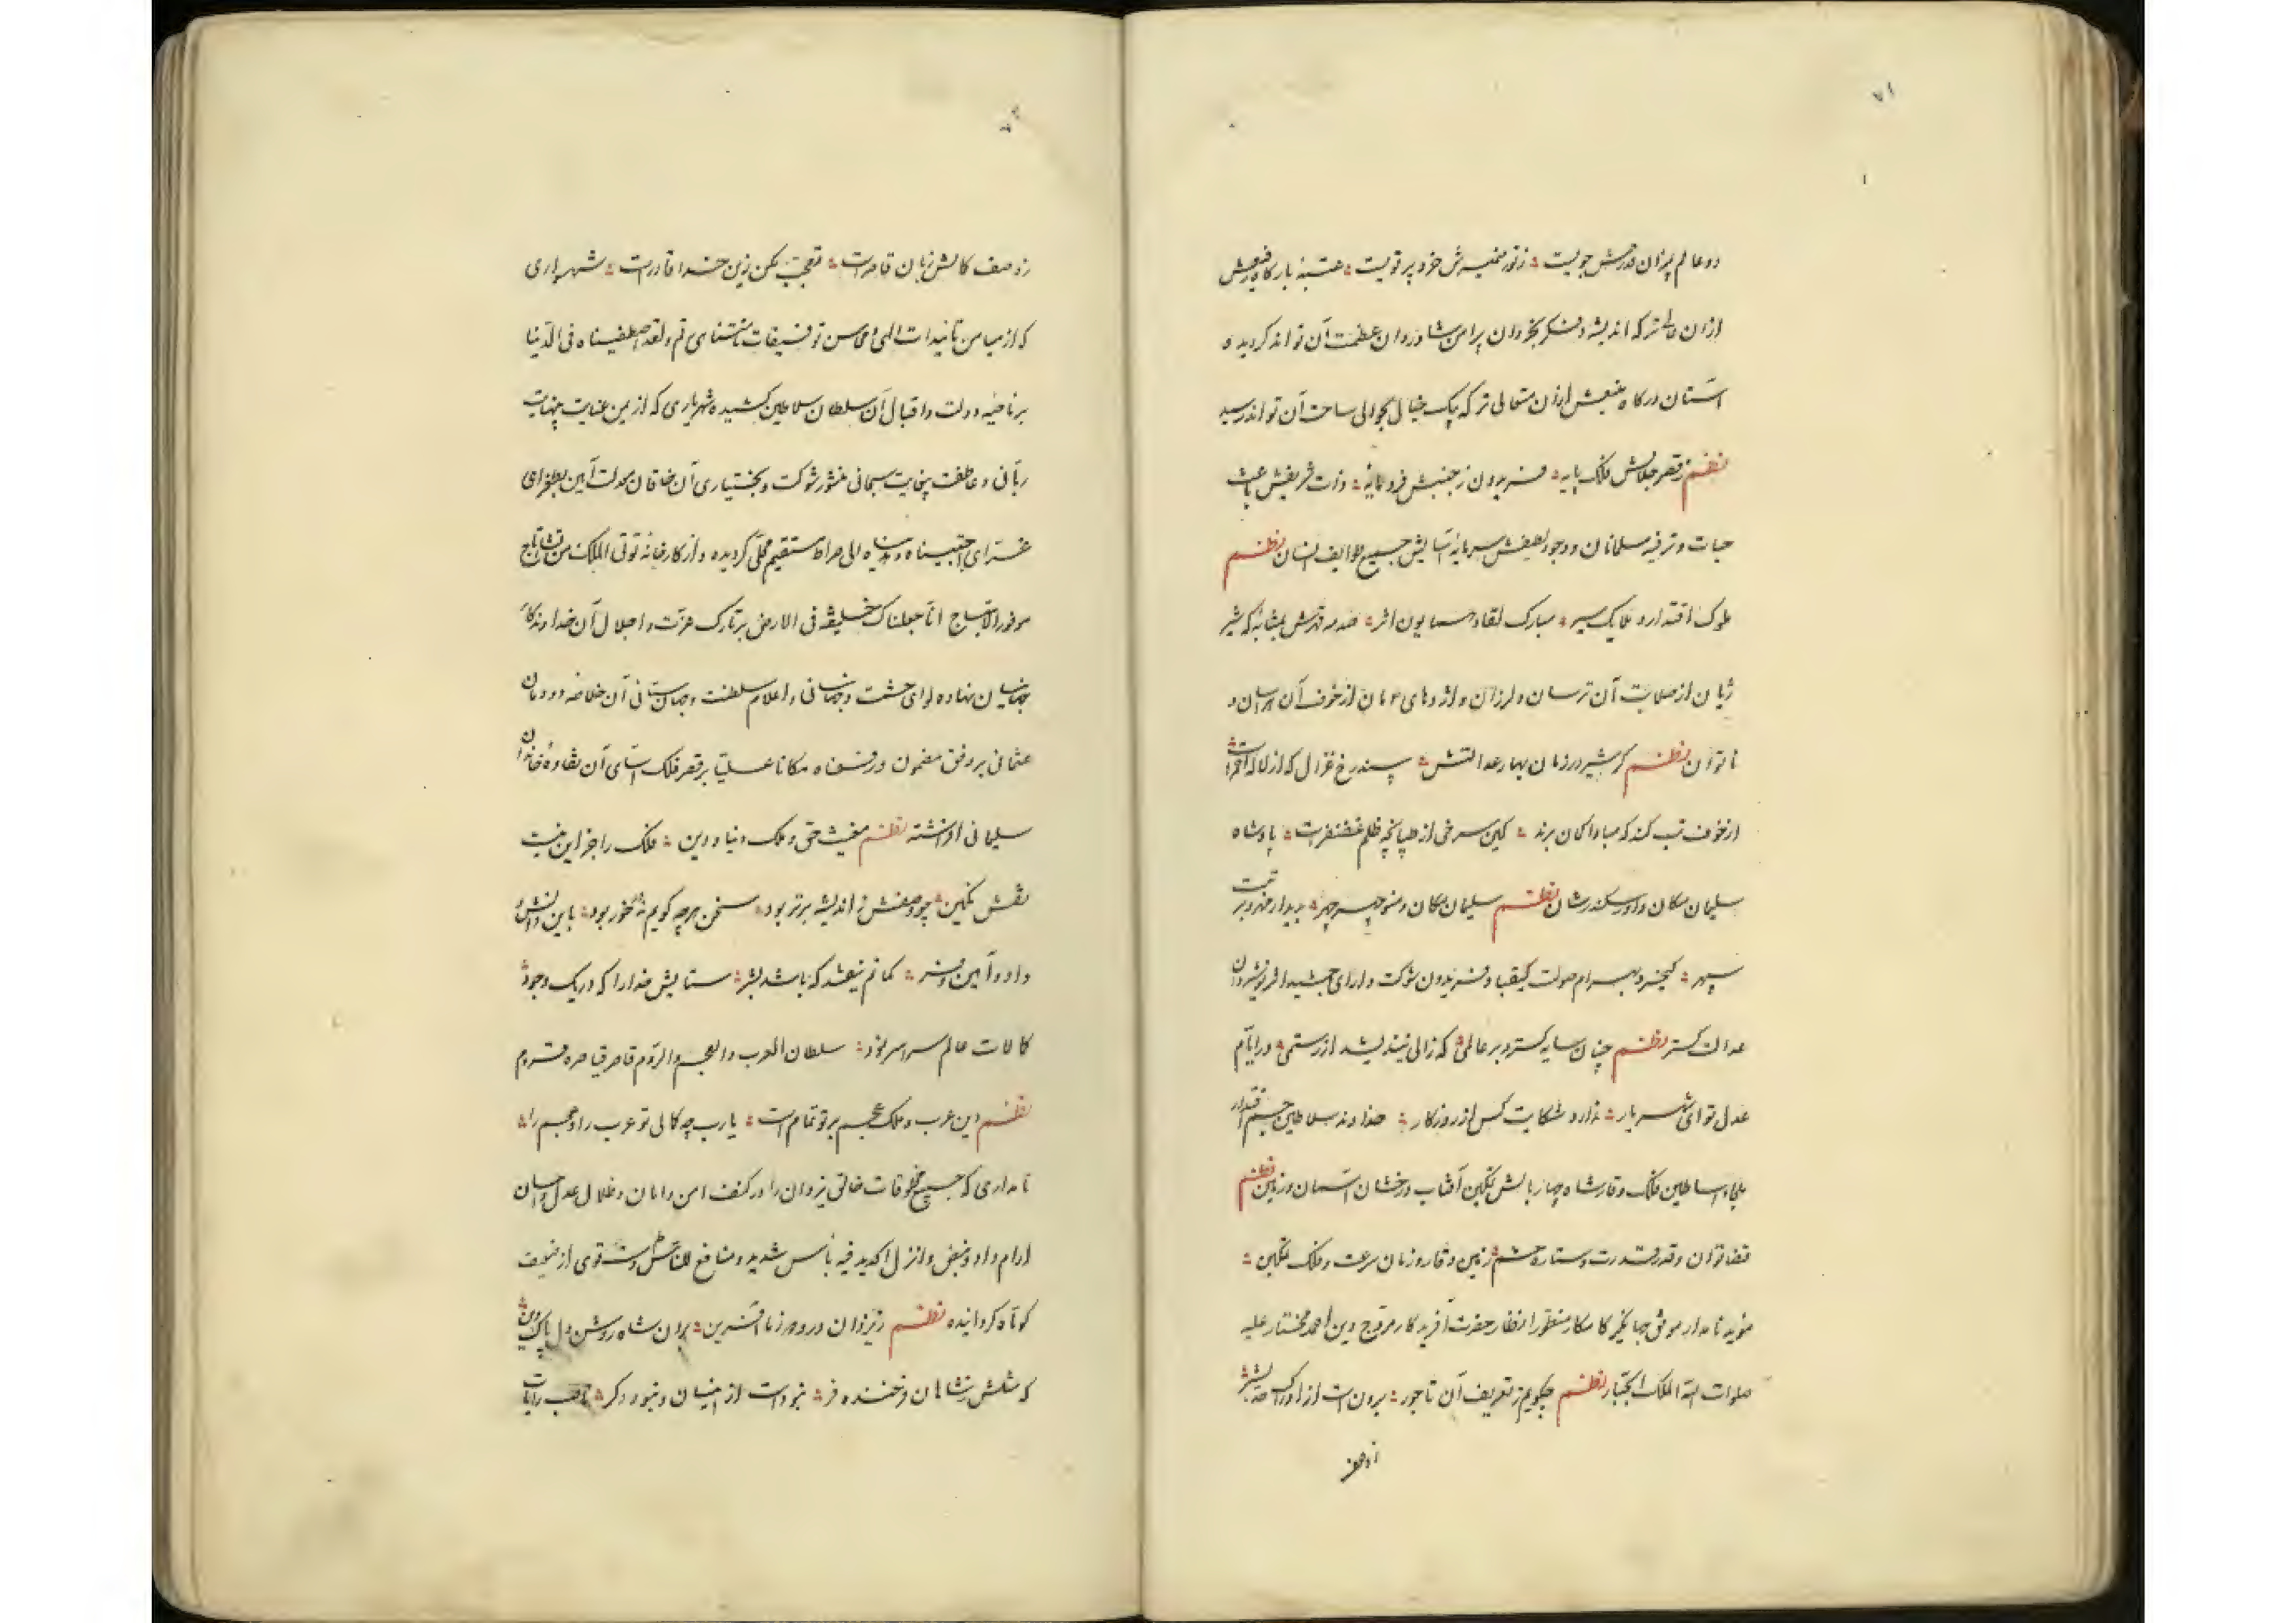 ۷۱
دو عالم پران قدرش جویست زنور ضمیرش خرد پرتویست عتبهٔ بارگاه رفیعش
ازان عالی‌تر که اندیشه و فکر بخردان پیرامن شادروان عظمت آن تواند گردیده
آستان درگاه منیعش ازان متعالی‌تر که پیک خیال بحوالی ساحت آن تواند رسید
نظم زقصر جلالش فلک پایه فریدون ز جنبش فرومایه وذات شریفش باعث
حیات و ترفیه مسلمانان و وجود لطیفش سرمایهٔ آسایش جمیع طوایف انسان نظم
ملوک اقتدار و ملایک سیر مبارک لقا و همایون اثر صدمه قهرش بمثابهٔ که شیر
ژیان از صلابت آن ترسان و لرزان و اژدهای دمان از خوف آن هراسان و
ناتوان نظم گر شیر در زمان بهار عدالتش بیند رخ غزال که از لاله احمرست
از خوف تب کند که مبادا گمان برند کین سرخی از طپانچه ظلم غضنفرست پادشاه
سلیمان مکان داور سکندر شان نظم سلیمان مکان و منوچهر چهر بدیدار خوبتر
سپهر کیخسرو بهرام صولت کیقباد فریدون شوکت دارای جمشید فر نوشیروان
عدالت گستر نظم چنان سایه گسترد بر عالمی که زالی نیندیشد از رستمی در ایام
عدل تو ای شهریار ندارد شکایت کس از روزگار خداوند سلاطین جم اقتدار
ملجاء اساطین فلک وقار شاه چاربالش تمکین آفتاب درخشان آسمان و زمین نظم
قضا توان و قدر قدرت و ستاره حشم زمین وقار و زمان سرعت و فلک تمکین
مؤید نامدار موفق جهانگیر کامکار منظور انظار حضرت آفریدگار مروج دین احمد مختار علیه
صلوات الله الملک الجبار نظم چگویم ز تعریف آن تاجور برونست از ادراک بشر
ازوصف
زوصف کمالش زبان قاصرست تعجب مکن زین خدا قادرست شهریاری
که از میامن تائیدات الهی و محاسن توفیقات نامتناهی رقم ولقد اصطفیناه فی الدنیا
بر ناصیه دولت و اقبال آن سلطان سلاطین کشیده شهریاری که از یمن عنایت بینهایت
ربانی و عاطفت بیغایت سبحانی منشور شوکت و بختیاری آن خاقان معدلت آیین بطغرای
غرای اجتبیناه وهدیناه الی صراط مستقیم محلی گردیده و از کارخانه تؤتی الملک من تشاء تاج
موفور الابتهاج انا جعلناک خلیفة فی الارض بر تارک عزت و اجلال آن خداوندگار
جهانیان نهاده لوای حشمت و جهانبانی و اعلام سلطنت و جهان ستانی آن خلاصه دودمان
عثمانی بر وفق مضمون ورفعناه مکانا علیا بر قصر فلک آسای آن نقاوهٔ خاندان
سلیمانی افراشته نظم مغیث حق و ملک دنیا و دین فلک را جز این نیست
نقش نگین چو وصفش ز اندیشه برتر بود سخن هرچه گویم نه درخور بود باین دانش و
داد و آیین و فر گمانم نیفتد که باشد بشر ستایش خدا را که در یک وجود
کمالات عالم سراسر نمود سلطان العرب والعجم والروم قاصر قیاصره قروم
نظم دین عرب و ملک عجم بر تو تمام است یارب چه کمالی تو عرب را و عجم را
نامداری که جمیع مخلوقات خالق یزدان را در کنف امن و امان و ظلال عدل و احسان
آرام داد و بنص وانزل الحدید فیه باس شدید ومنافع للناس دست قوی از ضعیف
کوتاه گردانیده نظم زیزدان درود و ز ما آفرین بران شاه روشن دل پاک دین
که مثلش ز شاهان فرخنده فر نبودست از اینسان و نبود دگر ناصب رایات